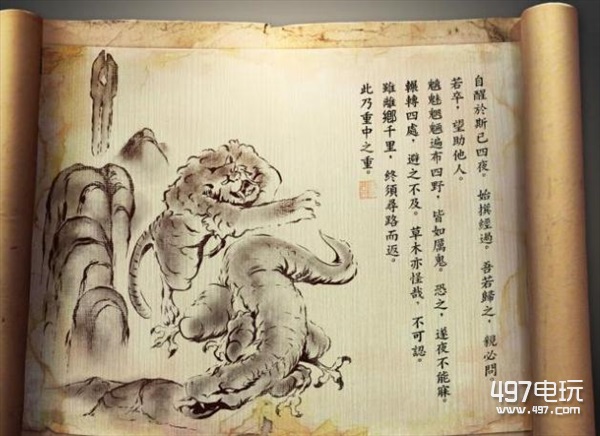 自醒於斯已四夜。始撰經過。吾若歸之，親必問，
若卒，望助他人。
魑魅魍魎遍布四野，皆如厲鬼。恐之，遂夜不能寐。
輾轉四處，避之不及。草木亦怪哉，不可認。
雖離鄉千里，終須尋路而返。
此乃重中之重。
497电玩
www.497.com